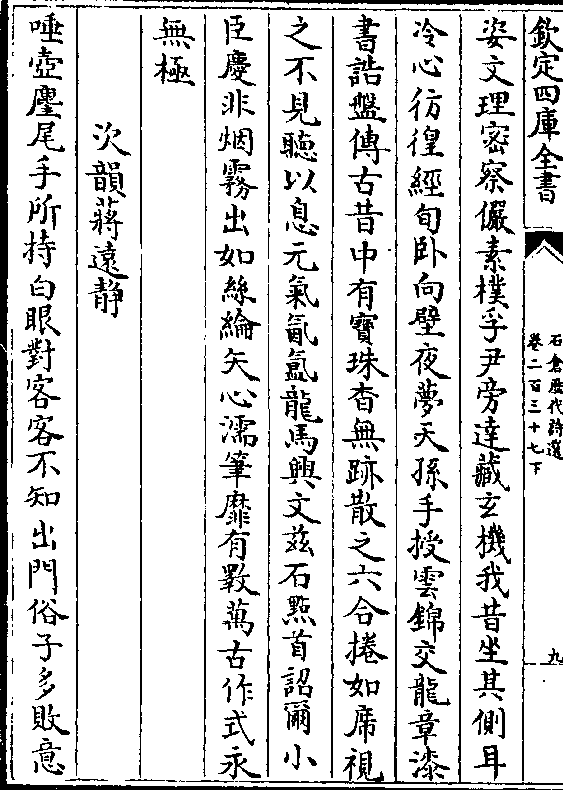 欽定四庫全書
石倉歷代詩選
卷二百三十七下
九
姿文理密察儼素樸孚尹旁達藏玄機我昔坐其側耳
冷心彷徨經旬卧向壁夜夢天孫手授雲錦交龍章漆
書誥盤傳古昔中有寶珠杳無跡散之六合捲如席視
之不見聽以息元氣氤氳龍馬興文兹石㸃首詔爾小
臣慶非烟霧出如絲綸矢心濡筆靡有斁萬古作式永
無極
次韻蔣遠静
唾壺麈尾手所持白眼對客客不知出門俗子多敗意